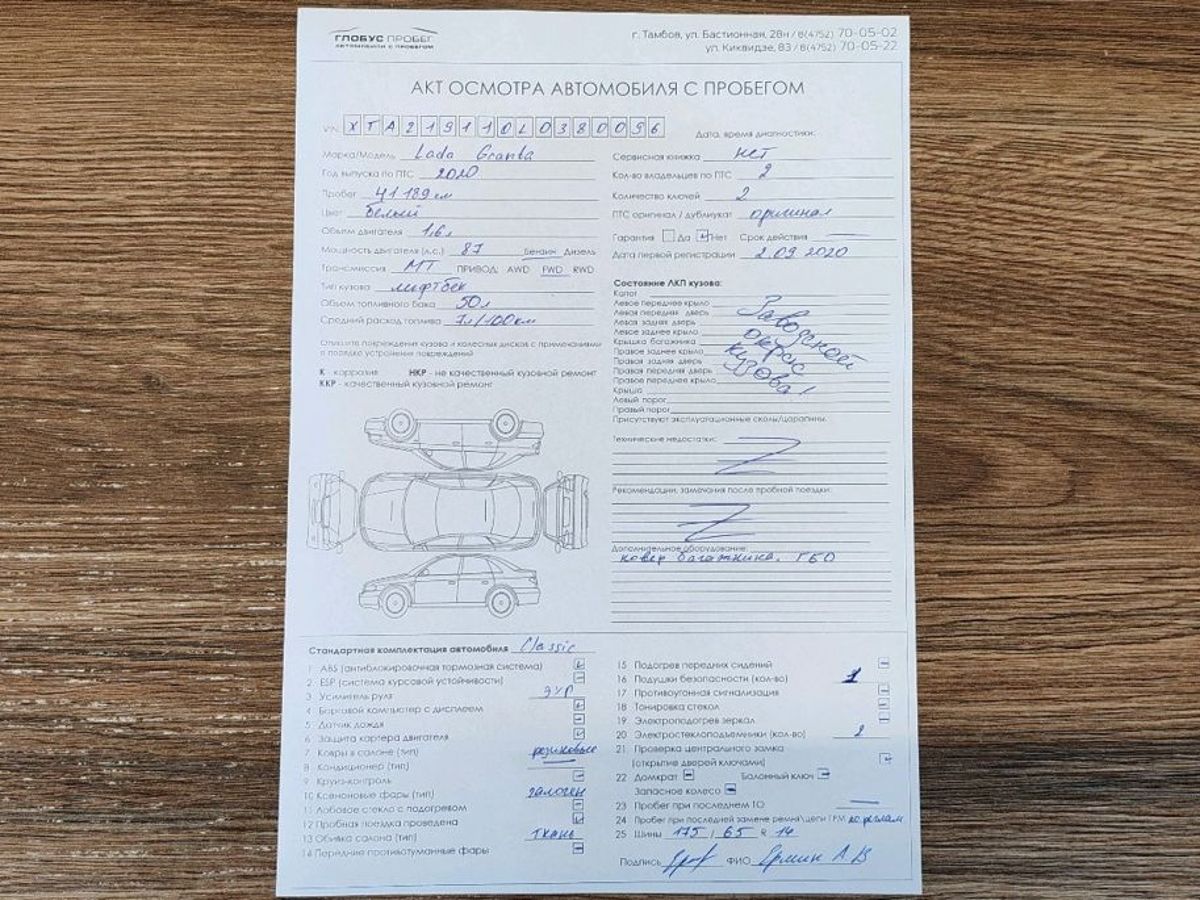 ГЛОБУС ПРОБЕГ
АВТОМОБИЛИ С ПРОБЕГОМ
г. Тамбов, ул. Бастионная, 28н / 8(4752) 70-05-02
ул. Киквидзе, 83 / 8(4752) 70-05-22
АКТ ОСМОТРА АВТОМОБИЛЯ С ПРОБЕГОМ
VIN XTA219110L0380096
Дата, время диагностики:
Марка/Модель Lada Granta
Год выпуска по ПТС 2020
Пробег 41 189 км
Цвет белый
Объем двигателя 1,6 л
Мощность двигателя (л.с.) 87 Бензин Дизель
Трансмиссия МТ ПРИВОД: AWD FWD RWD
Тип кузова лифтбек
Объем топливного бака 50 л
Средний расход топлива 7л/100км
Опишите повреждения кузова и колесных дисков с примечаниями
о порядке устранения повреждений
К - коррозия НКР - не качественный кузовной ремонт
ККР - качественный кузовной ремонт
Сервисная книжка нет
Кол-во владельцев по ПТС 2
Количество ключей 2
ПТС оригинал / дубликат оригинал
Гарантия Да Нет Срок действия
Дата первой регистрации 2.09.2020
Состояние ЛКП кузова:
Капот
Левое переднее крыло
Левая передняя дверь
Левая задняя дверь
Левое заднее крыло
Крышка багажника
Правое заднее крыло
Правая задняя дверь
Правая передняя дверь
Правое переднее крыло
Крыша
Левый порог
Правый порог
Заводской
окрас
кузова!
Присутствуют эксплуатационные сколы/царапины.
Технические недостатки:
Рекомендации, замечания после пробной поездки:
Дополнительное оборудование:
ковер багажника. ГБО
Стандартная комплектация автомобиля Classic
1 ABS (антиблокировочная тормозная система)
2 ESP (система курсовой устойчивости)
3 Усилитель руля ЭУР
4 Бортовой компьютер с дисплеем
5 Датчик дождя
6 Защита картера двигателя
7 Ковры в салоне (тип) резиновые
8 Кондиционер (тип)
9 Круиз-контроль
10 Ксеноновые фары (тип) галоген
11 Лобовое стекло с подогревом
12 Пробная поездка проведена
13 Обивка салона (тип) ткань
14 Передние противотуманные фары
15 Подогрев передних сидений
16 Подушки безопасности (кол-во) 1
17 Противоугонная сигнализация
18 Тонировка стекол
19 Электроподогрев зеркал
20 Электростеклоподъемники (кол-во) 2
21 Проверка центрального замка
(открытие дверей ключами)
22 Домкрат Балонный ключ
Запасное колесо
23 Пробег при последнем ТО
24 Пробег при последней замене ремня\цепи ГРМ
25 Шины 175 / 65 R 14
Подпись ФИО Ермин А В